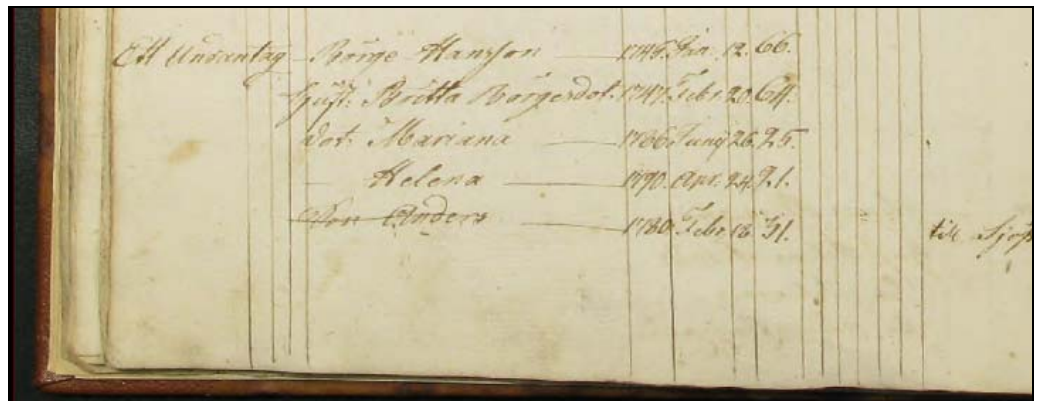 Ett Undantag Börge Hansson 1745. Jan. 12. 66.
Hust: Britta Börgesdot. 1747. Febr. 20. 64.
dot: Mariana 1786. Juny 26. 25.
Helena 1790. Apr. 24. 21.
Son Anders 1780. Febr. 18. 31. till